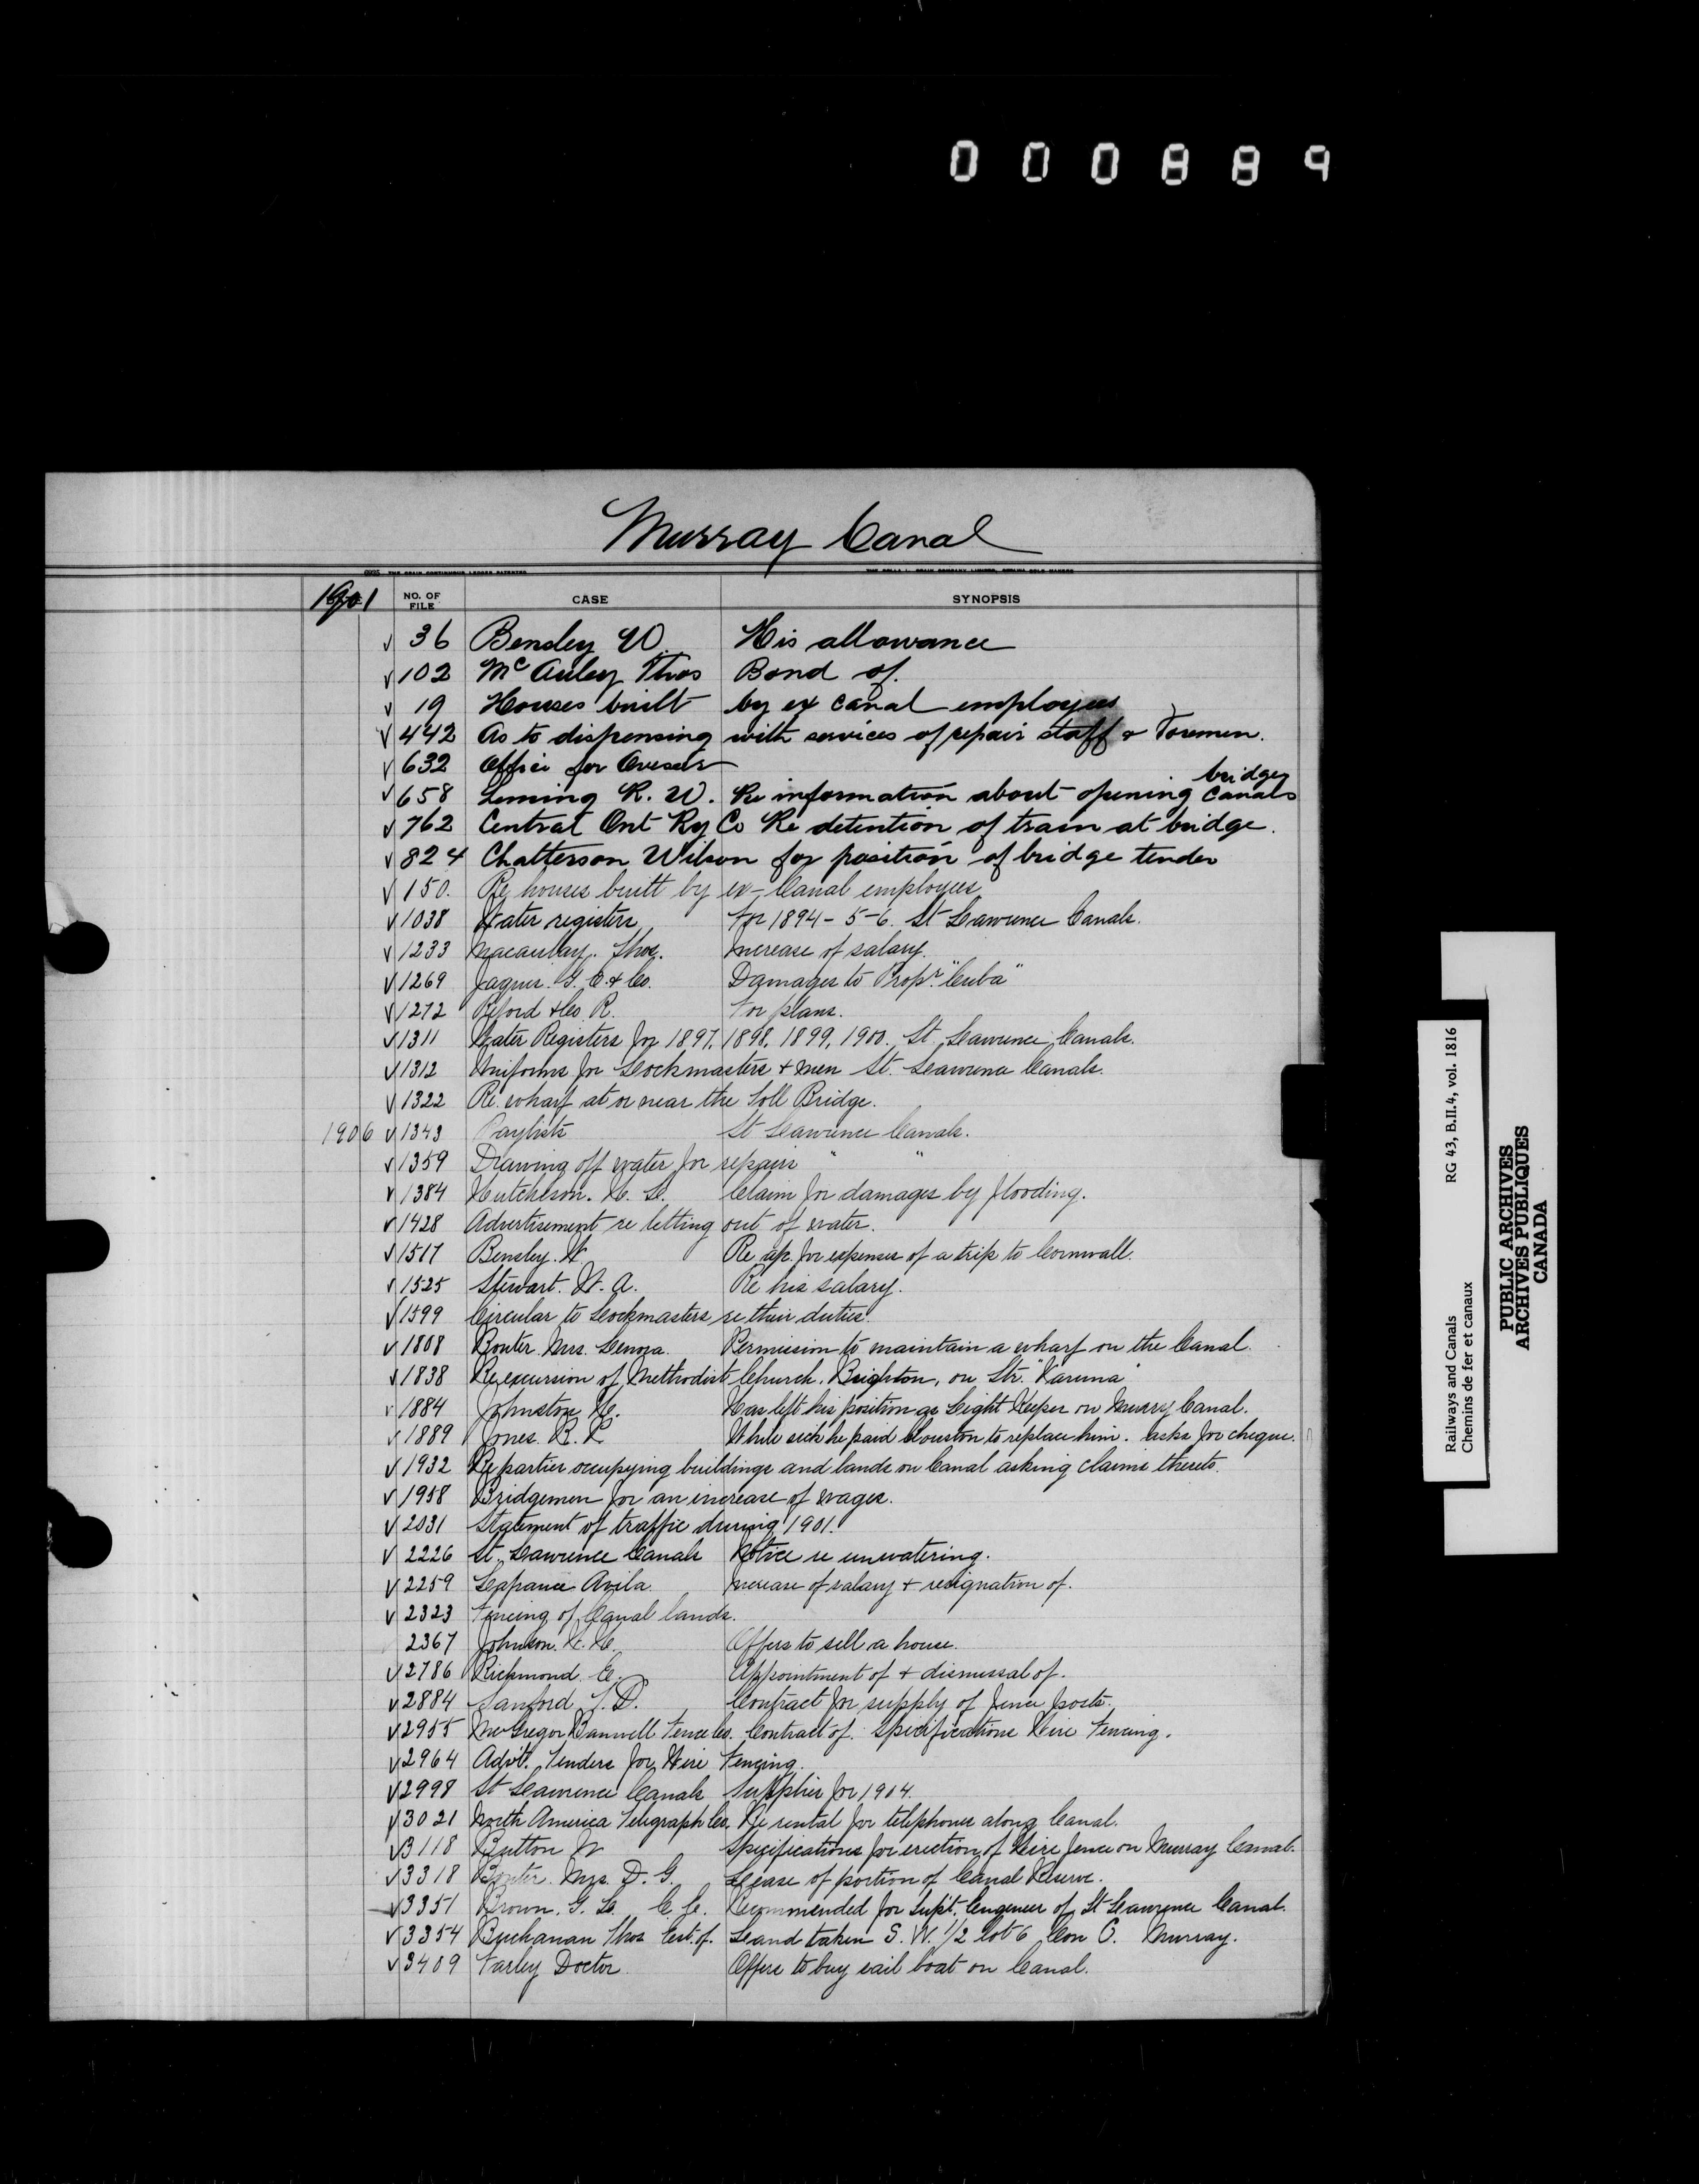 000889
Murray Canal
1901 NO. OF FILE CASE SYNOPSIS
√ 36 Bensley W. His allowance
√ 102 McAuley Thos Bond of.
√ 19 Houses built by ex canal employees
√ 442 As to dispensing with services of repair staff & Foremen.
√ 632 Office for Overseer
bridges
√ 658 Leming R. W. Re information about opening canals
√ 762 Central Ont Ry Co Re detention of train at bridge.
√ 824 Chatterson Wilson for position of bridge tender
√ 150. Re houses built by ex-Canal employees
√ 1038 Water registers for 1894-5-6. St Lawrence Canals.
√ 1233 Macaulay. Thos. Increase of salary.
√ 1269 Jaques. G. E. & Co. Damages to Propr. "Cuba"
√ 1272 Reford & Co. R. For plans.
√ 1311 Water Registers for 1897, 1898, 1899, 1900. St. Lawrence Canals.
√ 1312 Uniforms for Lockmasters & men St. Lawrence Canals.
√ 1322 Re. wharf at or near the Toll Bridge.
1906 √ 1343 Paylists St Lawrence Canals.
√ 1359 Drawing off water for repairs " "
√ 1384 Hutcheson. Claim for damages by flooding.
√ 1428 Advertisement re letting out of water.
√ 1517 Bensley. W. Re a/c for expenses of a trip to Cornwall.
√ 1525 Stewart. W. A. Re his salary.
√ 1599 Circular to Lockmasters re their duties.
√ 1808 Bonter Mrs. Lenora. Permission to maintain a wharf on the Canal.
√ 1838 Re excursion of Methodist Church, Brighton, on Str. "Varuna"
√ 1884 Johnston Has left his position as Light Keeper on Murray Canal.
√ 1889 Jones. R. While sick he paid Houston to replace him. asks for cheque.
√ 1932 Re parties occupying buildings and lands on Canal asking claims thereto.
√ 1958 Bridgemen for an increase of wages.
√ 2031 Statement of traffic during 1901.
√ 2226 St. Lawrence Canals Notice re unwatering.
√ 2259 Lafrance Avila. Increase of salary & resignation of.
√ 2323 Fencing of Canal lands.
2367 Johnson. Offers to sell a house.
√ 2786 Richmond. Appointment of & dismissal of.
√ 2884 Sanford Contract for supply of fence posts.
√ 2955 McGregor Banwell Fence Co. Contract of. Specifications Wire Fencing.
√ 2964 Advt. Tenders for Wire Fencing.
√ 2998 St Lawrence Canals Supplies for 1904.
√ 3021 North America Telegraph Co. Re rental for telephones along Canal.
√ 3118 Button W Specifications for erection of Wire fence on Murray Canal.
√ 3318 Bonter. Mrs. D. G. Lease of portion of Canal Reserve.
√ 3351 Brown. C. E. Recommended for Supt. Engineer of St Lawrence Canal.
√ 3354 Buchanan Thos Est. of. Land taken S. W. 1/2 lot 6 Con C. Murray.
√ 3409 Farley Doctor. Offers to buy sail boat on Canal.
Railways and Canals RG 43, B.II.4, vol. 1816
Chemins de fer et canaux
PUBLIC ARCHIVES
ARCHIVES PUBLIQUES
CANADA